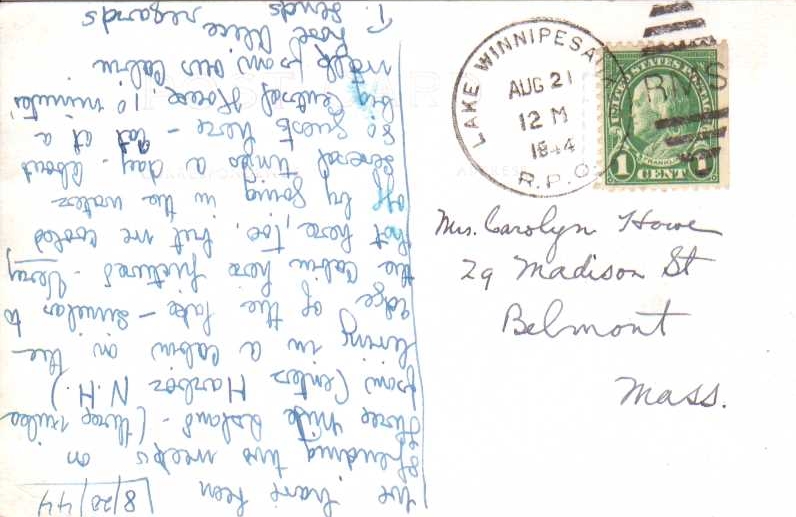 8/20/44
We have been
spending two weeks on
Three Mile Island - (three miles
from Center Harbor N.H.)
living in a cabin on the
edge of the lake - similar to
the cabin here pictured - Very
hot here, too, but we cooled
off by going in the water
several times a day - About
80 guests here - eat at a
big Central House 10 minutes
walk from our cabin
Alice
T. sends regards
LAKE WINNIPESAU
AUG 21
12 M
1944
R.P.O.
R.M.S
UNITED STATES POSTAGE
FRANKLIN
1 CENT 1
Mrs. Carolyn Howe
29 Madison St
Belmont
Mass.